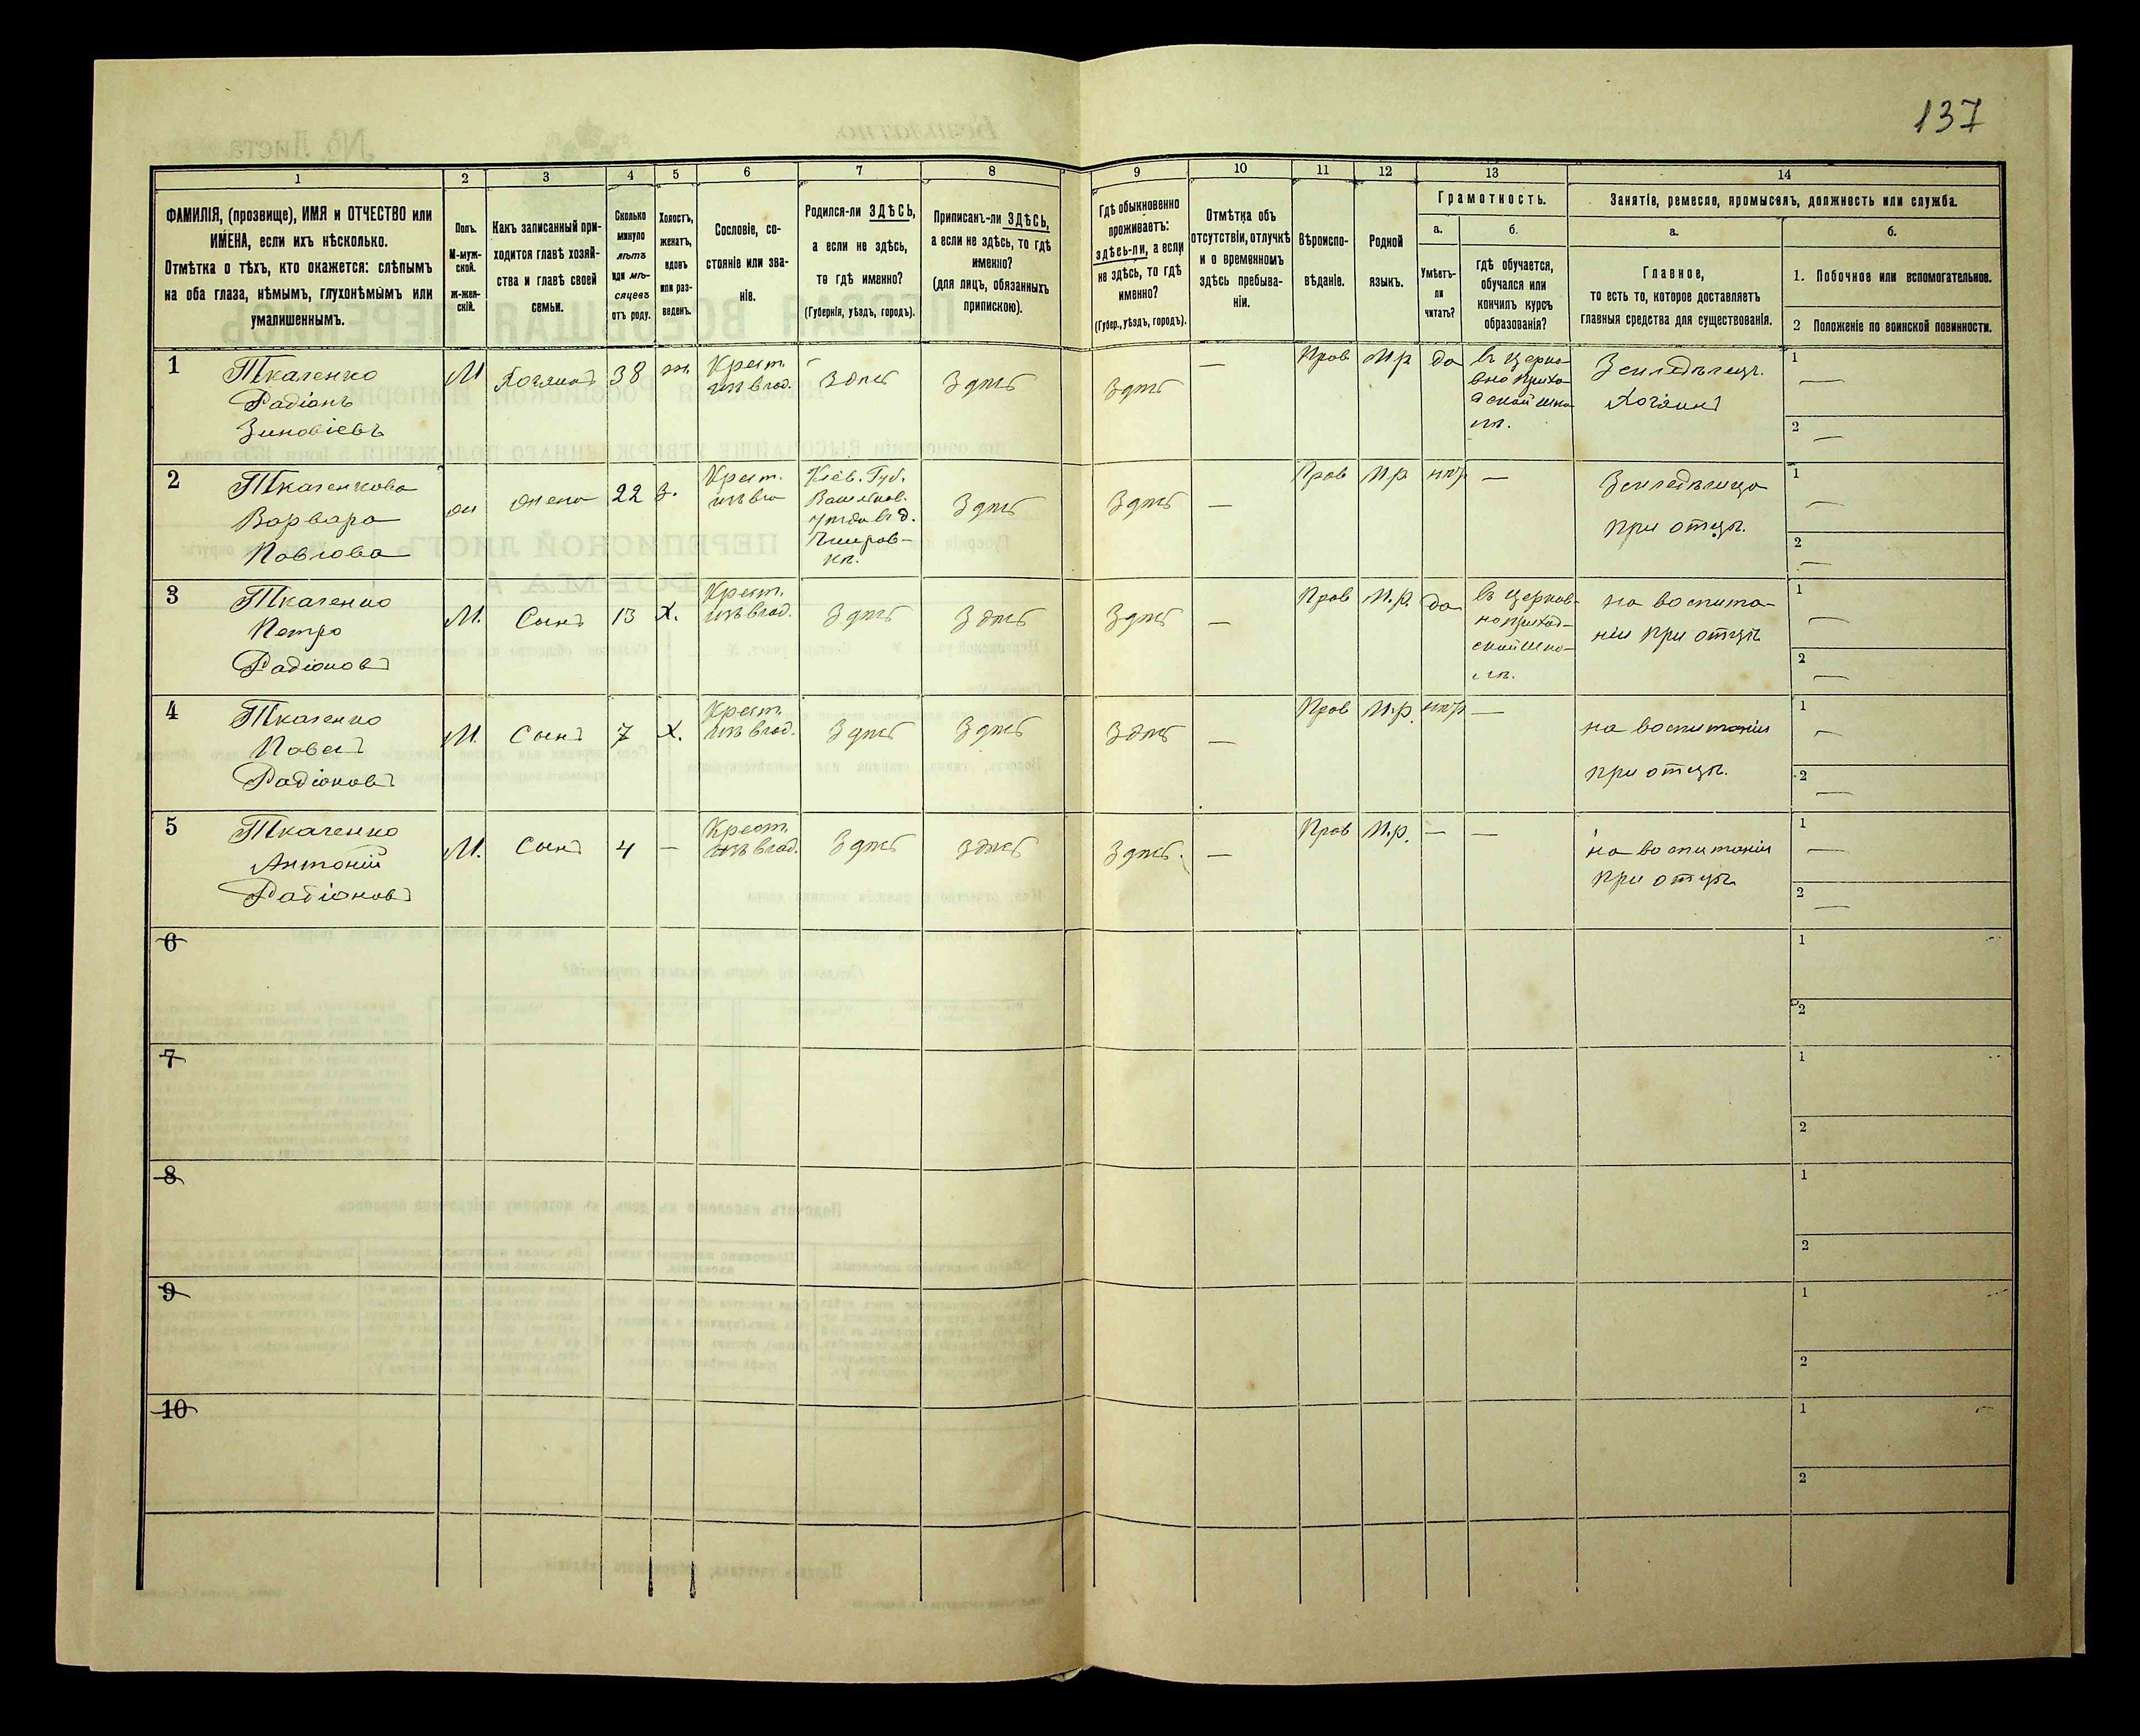 137
1
2
3
4
5
6
7
8
9
10
11
12
13
14
ФАМИЛІЯ, (прозвище), ИМЯ и ОТЧЕСТВО или
ИМЕНА, если ихъ нѣсколько.
Отмѣтка о тѣхъ, кто окажется: слѣпымъ
на оба глаза, нѣмымъ, глухонѣмымъ или
умалишеннымъ.
Полъ.
М-муж-
ской.
ж-жен-
скій.
Какъ записанный при-
ходится главѣ хозяй-
ства и главѣ своей
семьи.
Сколько
минуло
лѣтъ
или мѣ-
сяцевъ
отъ роду.
Холостъ,
женатъ,
вдовъ
или раз-
веденъ.
Сословіе, со-
стояніе или зва-
ніе.
Родился-ли ЗДѢСЬ,
а если не здѣсь,
то гдѣ именно?
(Губернія, уѣздъ, городъ).
Приписанъ-ли ЗДѢСЬ,
а если не здѣсь, то гдѣ
именно?
(для лицъ, обязанныхъ
припискою).
Гдѣ обыкновенно
проживаетъ:
здѣсь-ли, а если
не здѣсь, то гдѣ
именно?
(Губер., уѣздъ, городъ).
Отмѣтка объ
отсутствіи, отлучкѣ
и о временномъ
здѣсь пребыва-
ніи.
Вѣроиспо-
вѣданіе.
Родной
языкъ.
Грамотность.
а.
Умѣетъ-
ли
читать?
б.
гдѣ обучается,
обучался или
кончилъ курсъ
образованія?
Занятіе, ремесло, промыселъ, должность или служба.
а.
Главное,
то есть то, которое доставляетъ
главныя средства для существованія.
б.
1. Побочное или вспомогательное.
2 Положеніе по воинской повинности.
1
Ткаченко
Радіонъ
Зиновіевъ
М
Хозяинъ
38
ж.
Крест.
изъ влад.
Здѣсь
Здѣсь
Здѣсь
—
Прав
М.р
да
въ церко-
вно прихо-
дской шко-
лѣ.
Земледѣлецъ.
Хозяинъ
1
—
2
—
2
Ткаченкова
Варвара
Павлова
ж
жена
22
з.
Крест.
изъ вла
Кіев. Губ.
Васильков.
уѣзда въ д.
Здѣсь
Здѣсь
—
Прав
М.р
нѣт
—
Земледѣлица
при отцѣ.
1
—
2
—
3
Ткаченко
Петро
Радіоновъ
М.
Сынъ
13
Х.
Крест.
изъ влад.
Здѣсь
Здѣсь
Здѣсь
—
Прав
М.р.
да
въ церков-
но приход-
ской шко-
лѣ.
на воспита-
ніи при отцѣ
1
—
2
—
4
Ткаченко
Павелъ
Радіоновъ
М
Сынъ
7
Х.
Крест.
изъ влад.
Здѣсь
Здѣсь
Здѣсь
—
Прав
М.р.
нѣт
—
на воспитаніи
при отцѣ.
1
—
2
—
5
Ткаченко
Антоній
Радіоновъ
М.
Сынъ
4
—
Крест.
изъ влад.
Здѣсь
Здѣсь
Здѣсь.
—
Прав
М.р.
—
—
на воспитаніи
при отцѣ
1
—
2
—
6
1
2
7
1
2
8
1
2
9
1
2
10
1
2